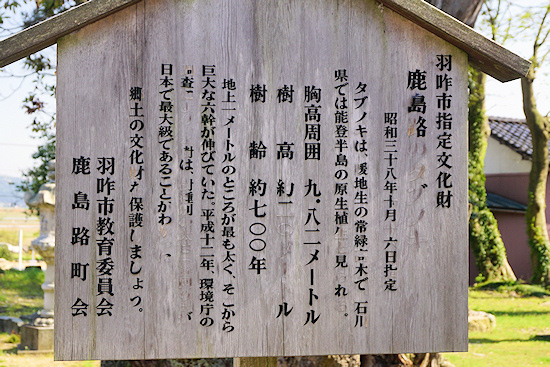 羽咋市指定文化財
鹿島路
昭和三十八年十月 六日指定
タブノキは 暖地生の常緑 木で 石川
県では能登半島の原生植 見 れ 。
胸高周囲 九.八二メートル
樹 高 約 二 ル
樹 齢 約七〇〇年
地上一メートルのところが最も太く、そこから
巨大な六幹が伸びていた。平成十二年、環境庁の
査 は、
日本で最大級であることがわ 、
郷土の文化財 保護しましょう。
羽咋市教育委員会
鹿島路町会